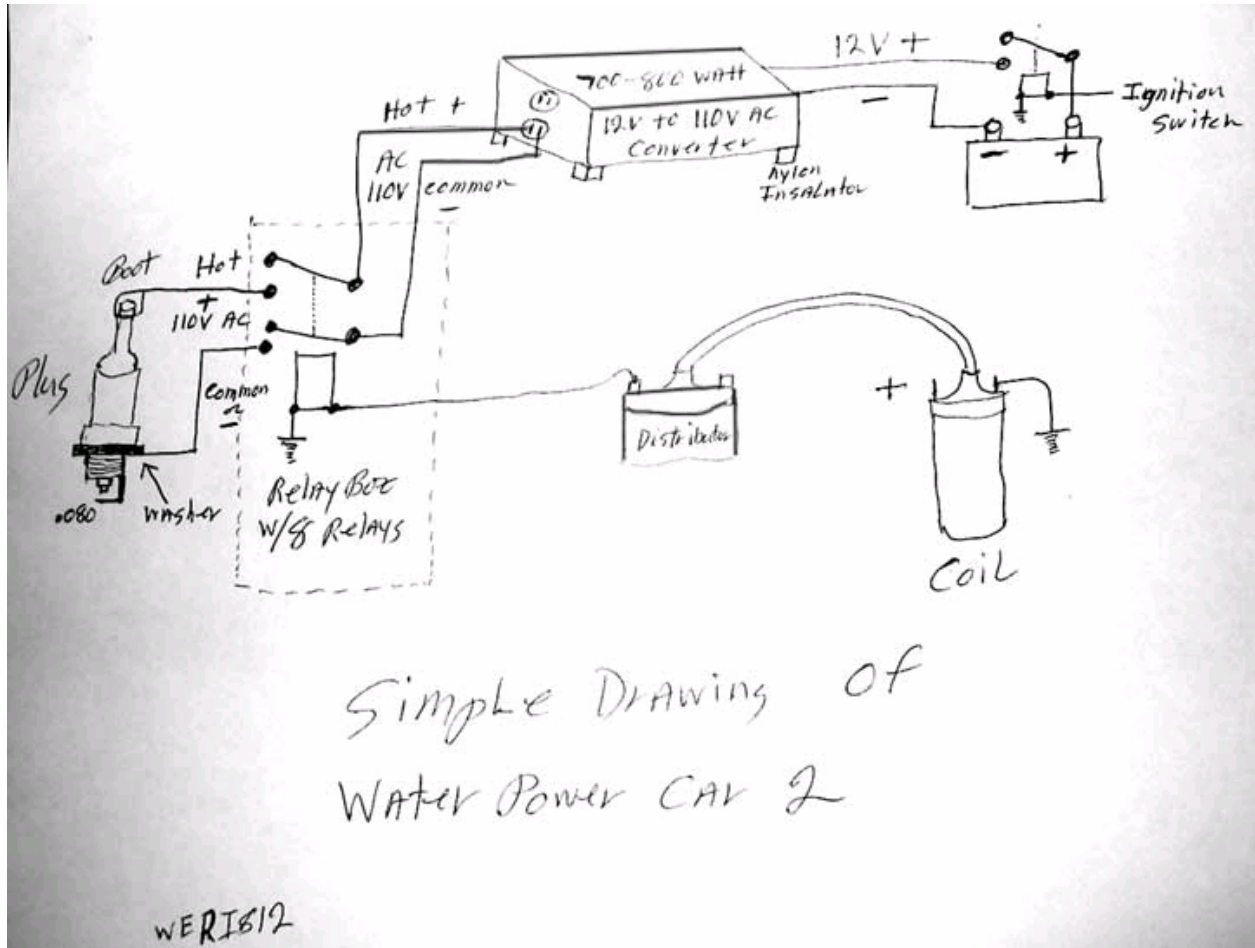 12V +
700-800 WATT
12V to 110V AC
Converter
Hot +
AC
110V
common
-
-
Ignition
Switch
- +
Nylon
Insalnator
Boot
Hot
+
110V AC
Plug
common
-
.080
washer
Relay Box
W/8 Relays
Distributor
+
Coil
Simple Drawing of
Water Power Car 2
WERI812